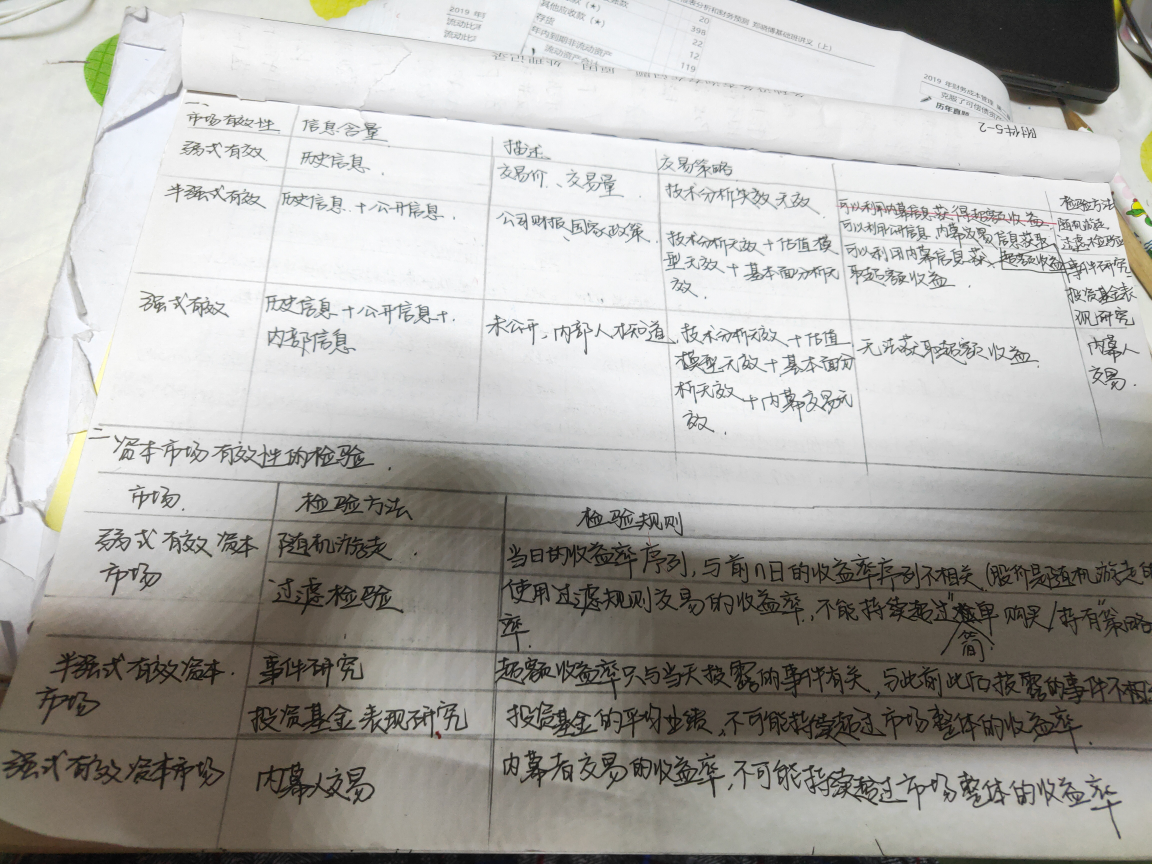 2019 年
流动比
流动比
其他应收款（★）
存货
年内到期非流动资产
流动资产合计
20
398
22
12
119
2019 年财务成本管理
克服了可偿债
历年真题
附件5-2
一、
市场有效性 信息含量 描述 交易策略 检验方法
弱式有效 历史信息. 交易价、交易量 技术分析失效 无效. 可以利用内幕信息获得超额收益 随机游走
可以利用公开信息 内幕交易信息获取超额收益 过滤检验
半强式有效 历史信息 + 公开信息. 公司财报、国家政策. 技术分析无效 + 估值模 可以利用内幕信息获 事件研究
型无效 + 基本面分析无 取超额收益. 投资基金表
效. 现研究
强式有效 历史信息 + 公开信息 + 未公开,内部人才知道 技术分析无效 + 估值 无法获取超额收益. 内幕人
内部信息 模型无效 + 基本面分 交易.
析无效 + 内幕交易无
效.
二 资本市场有效性的检验.
市场. 检验方法 检验规则
弱式有效资本 随机游走. 当日的收益率序列,与前n日的收益率序列不相关.(股价是随机游走的
市场 过滤检验 使用过滤规则交易的收益率,不能持续超过"简单购买/持有"策略
率.
半强式有效资本. 事件研究 超额收益率只与当天披露的事件有关,与此前此后披露的事件不相
市场 投资基金表现研究 投资基金的平均业绩,不可能持续超过市场整体的收益率.
强式有效资本市场 内幕人交易 内幕者交易的收益率,不可能持续超过市场整体的收益率